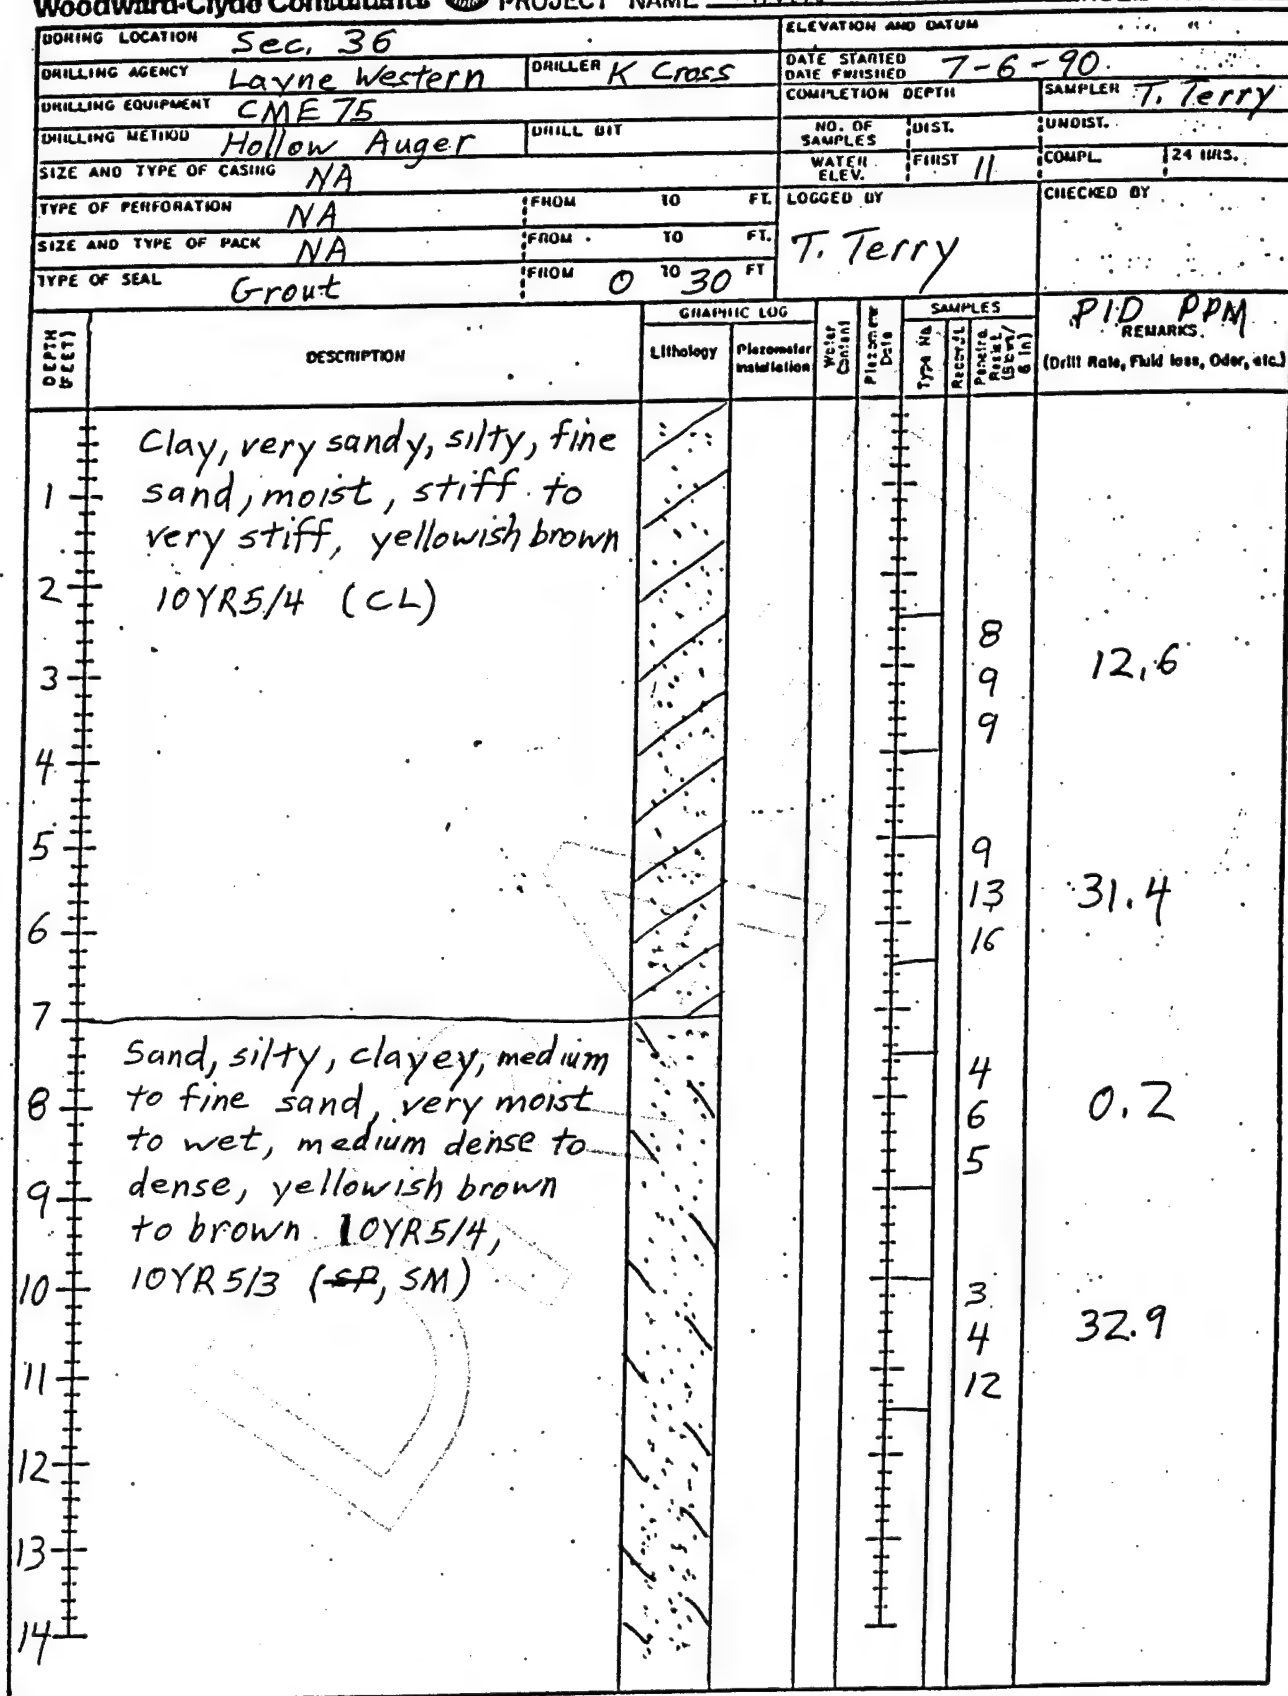 Woodward-Clyde Consultants PROJECT NAME
BORING LOCATION Sec. 36
ELEVATION AND DATUM
DRILLING AGENCY Layne Western DRILLER K Cross
DATE STARTED
DATE FINISHED 7-6-90
DRILLING EQUIPMENT CME 75
COMPLETION DEPTH SAMPLER T. Terry
DRILLING METHOD Hollow Auger DRILL BIT
NO. OF SAMPLES DIST. UNDIST.
SIZE AND TYPE OF CASING NA
WATER ELEV. FIRST 11 COMPL. 24 HRS.
TYPE OF PERFORATION NA FROM TO FT.
LOGGED BY CHECKED BY
SIZE AND TYPE OF PACK NA FROM TO FT.
T. Terry
TYPE OF SEAL Grout FROM 0 TO 30 FT
DEPTH (FEET)
DESCRIPTION
GRAPHIC LOG
Lithology
Piezometer Installation
Water Content
Piezometer Data
SAMPLES
Type No.
Penetra. Resist. (Blows/ 6 in)
PID PPM
REMARKS
(Drill Rate, Fluid loss, Odor, etc.)
Clay, very sandy, silty, fine
1 sand, moist, stiff to
very stiff, yellowish brown
2 10YR5/4 (CL)
8
3 9 12.6
9
4
5 9
13 31.4
6 16
7
Sand, silty, clayey, medium 4
8 to fine sand, very moist 6 0.2
to wet, medium dense to 5
9 dense, yellowish brown
to brown 10YR5/4,
10 10YR5/3 (SP, SM) 3
4 32.9
11 12
12
13
14